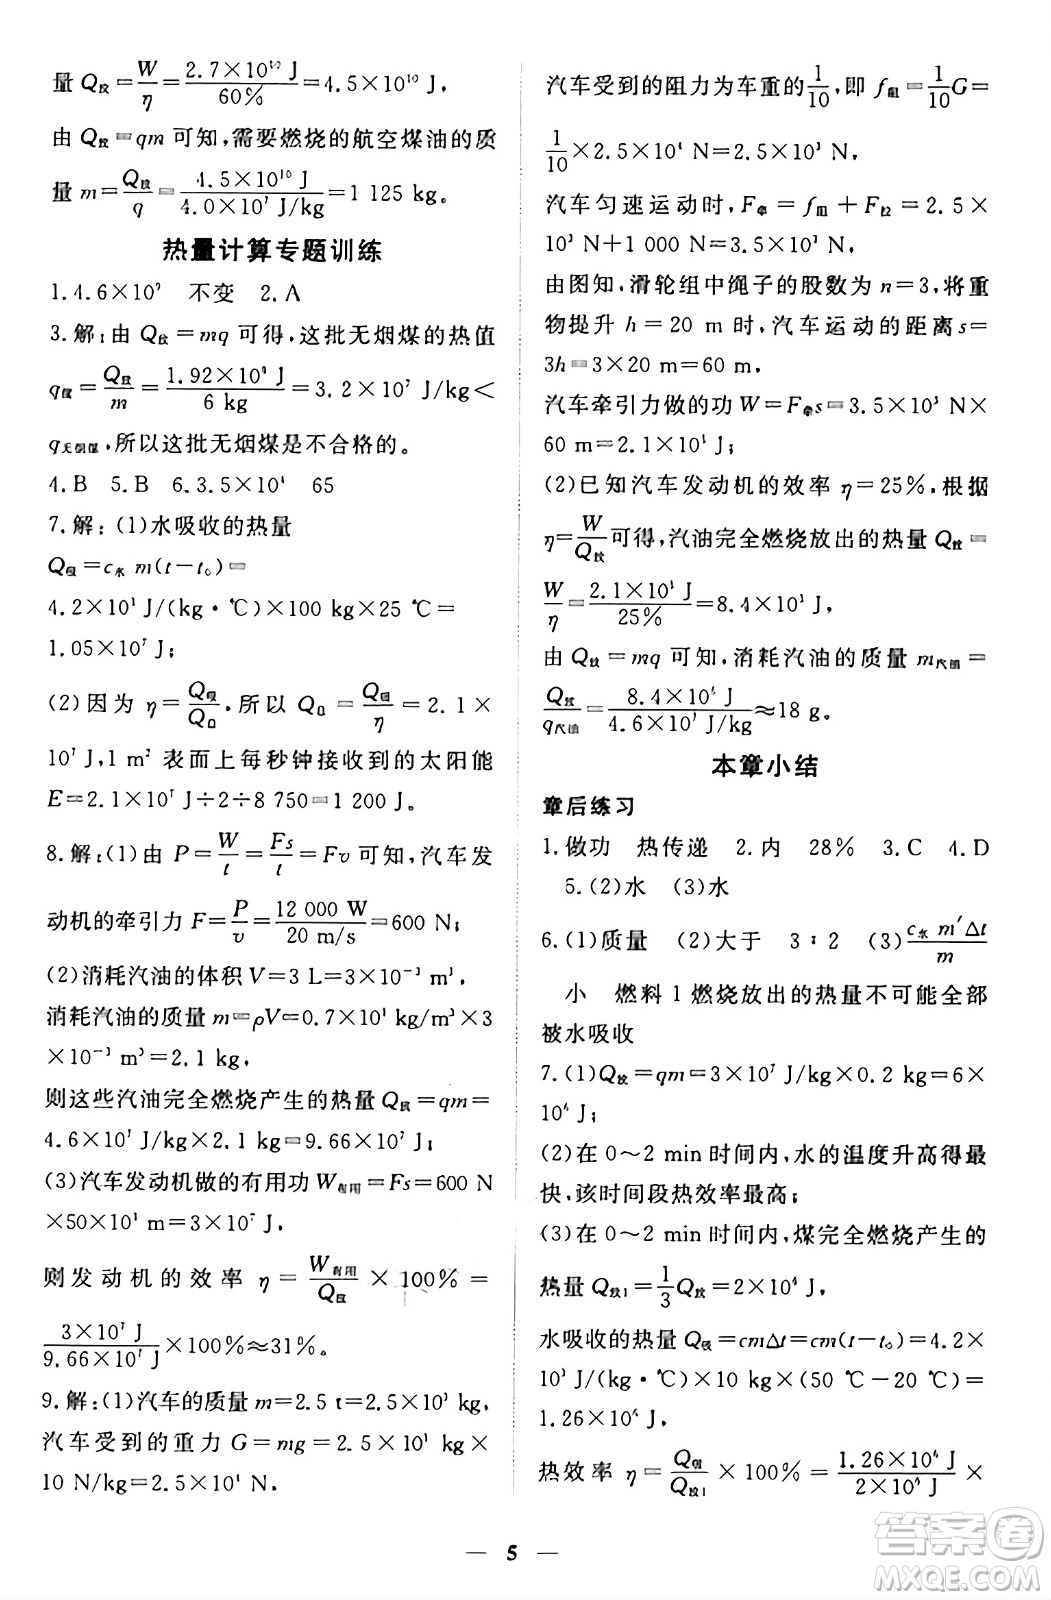 量 Q放=W/η=2.7×10¹⁰ J/60%=4.5×10¹⁰ J,
由 Q放=qm 可知,需要燃烧的航空煤油的质
量 m=Q放/q=4.5×10¹⁰ J/4.0×10⁷ J/kg=1 125 kg。
热量计算专题训练
1.4.6×10⁹ 不变 2.A
3.解:由 Q放=mq 可得,这批无烟煤的热值
q煤=Q放/m=1.92×10⁸ J/6 kg=3.2×10⁷ J/kg<
q无烟煤,所以这批无烟煤是不合格的。
4.B 5.B 6.3.5×10⁴ 65
7.解:(1)水吸收的热量
Q吸=c水 m(t-t₀)=
4.2×10³ J/(kg·℃)×100 kg×25 ℃=
1.05×10⁷ J;
(2)因为 η=Q吸/Q总,所以 Q总=Q吸/η=2.1×
10⁷ J,1 m² 表面上每秒钟接收到的太阳能
E=2.1×10⁷ J÷2÷8 750=1 200 J。
8.解:(1)由 P=W/t=Fs/t=Fv 可知,汽车发
动机的牵引力 F=P/v=12 000 W/20 m/s=600 N;
(2)消耗汽油的体积 V=3 L=3×10⁻³ m³,
消耗汽油的质量 m=ρV=0.7×10³ kg/m³×3
×10⁻³ m³=2.1 kg,
则这些汽油完全燃烧产生的热量 Q放=qm=
4.6×10⁷ J/kg×2.1 kg=9.66×10⁷ J;
(3)汽车发动机做的有用功 W有用=Fs=600 N
×50×10³ m=3×10⁷ J,
则发动机的效率 η=W有用/Q放×100%=
3×10⁷ J/9.66×10⁷ J×100%≈31%。
9.解:(1)汽车的质量 m=2.5 t=2.5×10³ kg,
汽车受到的重力 G=mg=2.5×10³ kg×
10 N/kg=2.5×10⁴ N,
汽车受到的阻力为车重的1/10,即 f阻=1/10G=
1/10×2.5×10⁴ N=2.5×10³ N,
汽车匀速运动时,F牵=f阻+F拉=2.5×
10³ N+1 000 N=3.5×10³ N,
由图知,滑轮组中绳子的股数为 n=3,将重
物提升 h=20 m 时,汽车运动的距离 s=
3h=3×20 m=60 m,
汽车牵引力做的功 W=F牵s=3.5×10³ N×
60 m=2.1×10⁵ J;
(2)已知汽车发动机的效率 η=25%,根据
η=W/Q放可得,汽油完全燃烧放出的热量 Q放=
W/η=2.1×10⁵ J/25%=8.4×10⁵ J,
由 Q放=mq 可知,消耗汽油的质量 m汽油=
Q放/q汽油=8.4×10⁵ J/4.6×10⁷ J/kg≈18 g。
本章小结
章后练习
1.做功 热传递 2.内 28% 3.C 4.D
5.(2)水 (3)水
6.(1)质量 (2)大于 3∶2 (3)c水 m′Δt/m
小 燃料 1 燃烧放出的热量不可能全部
被水吸收
7.(1)Q放=qm=3×10⁷ J/kg×0.2 kg=6×
10⁶ J;
(2)在 0~2 min 时间内,水的温度升高得最
快,该时间段热效率最高;
(3)在 0~2 min 时间内,煤完全燃烧产生的
热量 Q放1=1/3Q放=2×10⁶ J,
水吸收的热量 Q吸=cmΔt=cm(t-t₀)=4.2×
10³ J/(kg·℃)×10 kg×(50 ℃-20 ℃)=
1.26×10⁶ J,
热效率 η=Q吸/Q放1×100%=1.26×10⁶ J/2×10⁶ J×
— 5 —
答案卷
MXQE.COM